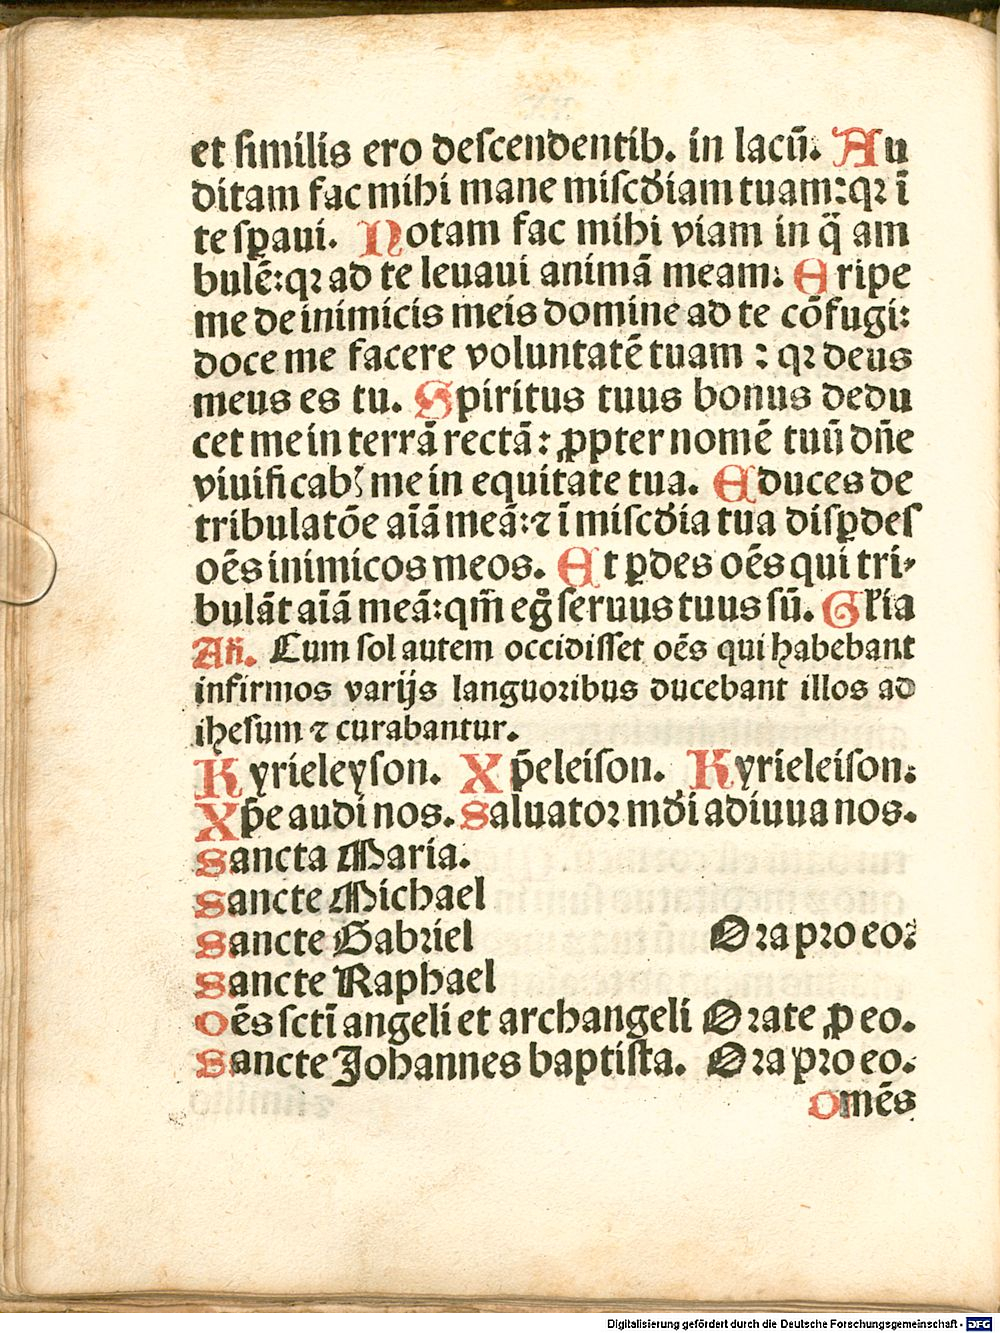 et similis ero descendentib. in lacū. Au
ditam fac mihi mane miscd̄iam tuam: qꝛ ī
te sꝑaui. Notam fac mihi viam in q̄ am
bulē: qꝛ ad te leuaui animā meam. Eripe
me de inimicis meis domine ad te cōfugi:
doce me facere voluntatē tuam : qꝛ deus
meus es tu. Spiritus tuus bonus dedu
cet me in terrā rectā: ꝓpter nomē tuū dn̄e
viuificabꝭ me in equitate tua. Educes de
tribulatōe aīā meā: ⁊ ī miscd̄ia tua disꝑdes
oēs inimicos meos. Et ꝑdes oēs qui tri-
bulāt aīā meā: qm̄ egͦ seruus tuus sū. Gl̄ia
An̄. Cum sol autem occidisset oēs qui habebant
infirmos varijs languoribus ducebant illos ad
ihesum ⁊ curabantur.
Kyrieleyson. Xp̄eleison. Kyrieleison.
Xp̄e audi nos. Saluatoꝛ md̄i adiuua nos.
Sancta Maria.
Sancte Michael
Sancte Gabriel Oꝛa pꝛo eo.
Sancte Raphael
Oēs sctī angeli et archangeli Oꝛate ꝓ eo.
Sancte Johannes baptista. Oꝛa pꝛo eo.
Omēs
Digitalisierung gefördert durch die Deutsche Forschungsgemeinschaft - DFG